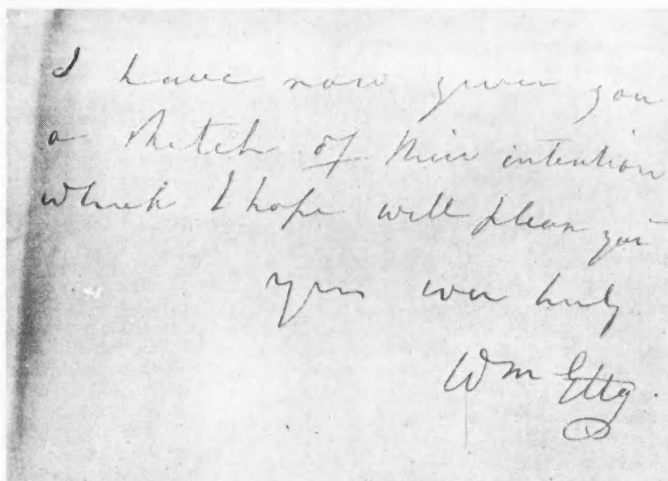 I have now given you
a sketch of their intention
which I hope will please you
yrs ever truly
Wm Etty.